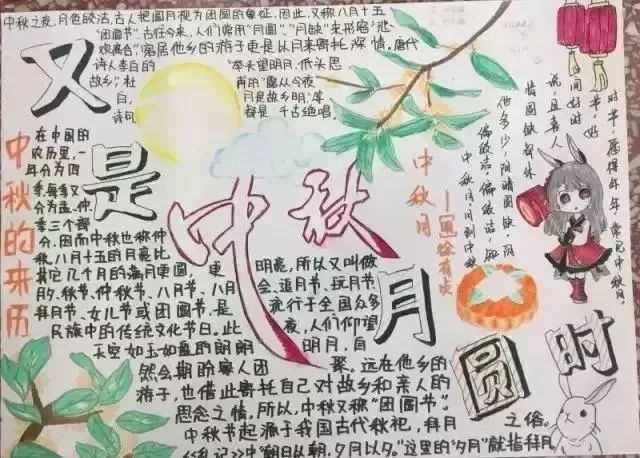 中秋之夜,月色皎洁,古人把圆月视为团圆的象征,因此,又称八月十五
"团圆节"。古往今来,人们常用"月圆"、"月缺"来形容"悲
欢离合",客居他乡的游子更是以月来寄托深情。唐代
诗人李白的"举头望明月,低头思
故乡",杜甫的"露从今夜
白,月是故乡明"等
诗句都是千古绝唱。
又是中秋月圆时
中秋的来历
在中国的
农历里,一
年分为四
季,每季又
分为孟、仲、
季三个部
分,因而中秋也称仲
秋。八月十五的月亮比
其它几个月的满月更圆,更明亮,所以又叫做
月夕、秋节、仲秋节、八月节、八月会、追月节、玩月节、
拜月节、女儿节或团圆节,是流行于全国众多
民族中的传统文化节日。此夜,人们仰望
天空如玉如盘的朗朗明月,自
然会期盼家人团聚。远在他乡的
游子,也借此寄托自己对故乡和亲人的
思念之情。所以,中秋又称"团圆节"。
中秋节起源于我国古代秋祀,拜月之俗。
《礼记》中"朝日以朝,夕月以夕。"这里的"夕月"就指拜月
中秋月
中秋月。月到中秋
偏皎洁。偏皎洁,知
他多少,阴晴圆缺。阴
晴圆缺都休
说,且喜人
间好时
节。好
时节,愿得年年,常见中秋月。